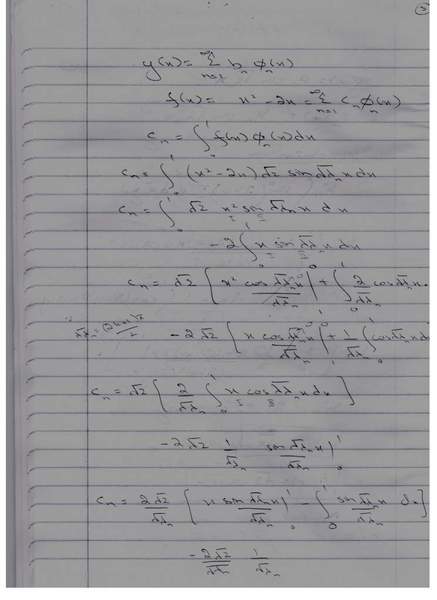 5
y(x) = ∞Σn=1 bn φn(x)
f(x) = x² - 2x = ∞Σn=1 cn φn(x)
cn = ∫₀¹ f(x) φn(x) dx
cn = ∫₀¹ (x² - 2x) √2 sin √λn x dx
cn = ∫₀¹ √2 x² sin √λn x dx
I II
- 2 ∫₀¹ x sin √λn x dx
I II
cn = √2 [ x² cos √λn x / √λn |₀¹ + ∫₀¹ 2/√λn cos √λn x
- 2√2 [ x cos √λn x / √λn |₀¹ + 1/√λn ∫₀¹ cos √λn x d
cn = √2 [ 2/√λn ∫₀¹ x cos √λn x dx ]
I II
- 2√2 1/√λn sin √λn x / √λn |₀¹
cn = 2√2/√λn [ x sin √λn x / √λn |₀¹ - ∫₀¹ sin √λn x / √λn dx ]
- 2√2/√λn 1/√λn